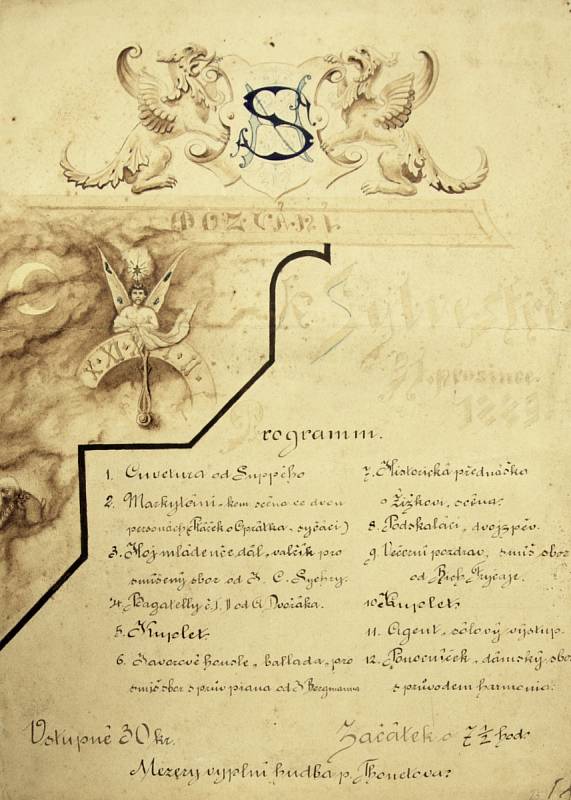 POZVÁNÍ
k Sylvestrů
31. prosince.
1883
Programm.
1. Ouvertura od Suppého
2. kom. scéna ve dvou
personách
3. Hoj mládenče dál, valčík pro
smíšený sbor od J. C. Sychry.
4. Bagatelly č. I, II od A. Dvořáka.
5. Kuplet.
6. Javorové housle, ballada, pro
smíš. sbor s prův. piana od J. Bergmanna
7. Historická přednáška
o Žižkovi, scéna.
8. Podskaláci, dvojzpěv.
9. Večerní pozdrav, smíš. sbor
od
10. Kuplet.
11. Agent, sólový výstup.
12. Ponocníček, dámský sbor
s průvodem harmonia.
Vstupné 30 kr.
Začátek o 7 ½ hod.
Mezery vyplní hudba p. Thonetova.